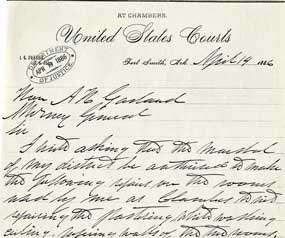 AT CHAMBERS.
United States Courts
DEPARTMENT
APR 1886
OF JUSTICE
Fort Smith, Ark. April 19 1886
Hon A H Garland
Attorney General
Sir
I write asking that the marshal
of my district be authorized to make
the following repairs on the rooms
used by me as Chambers to wit
repairing the plastering, white washing
ceiling, papering walls of the two rooms,